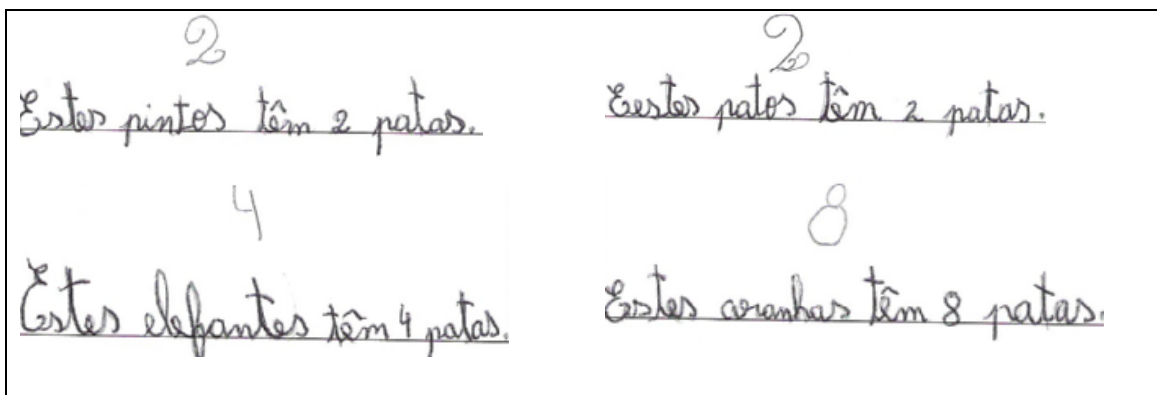 2
Estes pintos têm 2 patas.
2
Eestes patos têm 2 patas.
4
Estes elefantes têm 4 patas.
8
Estes aranhas têm 8 patas.